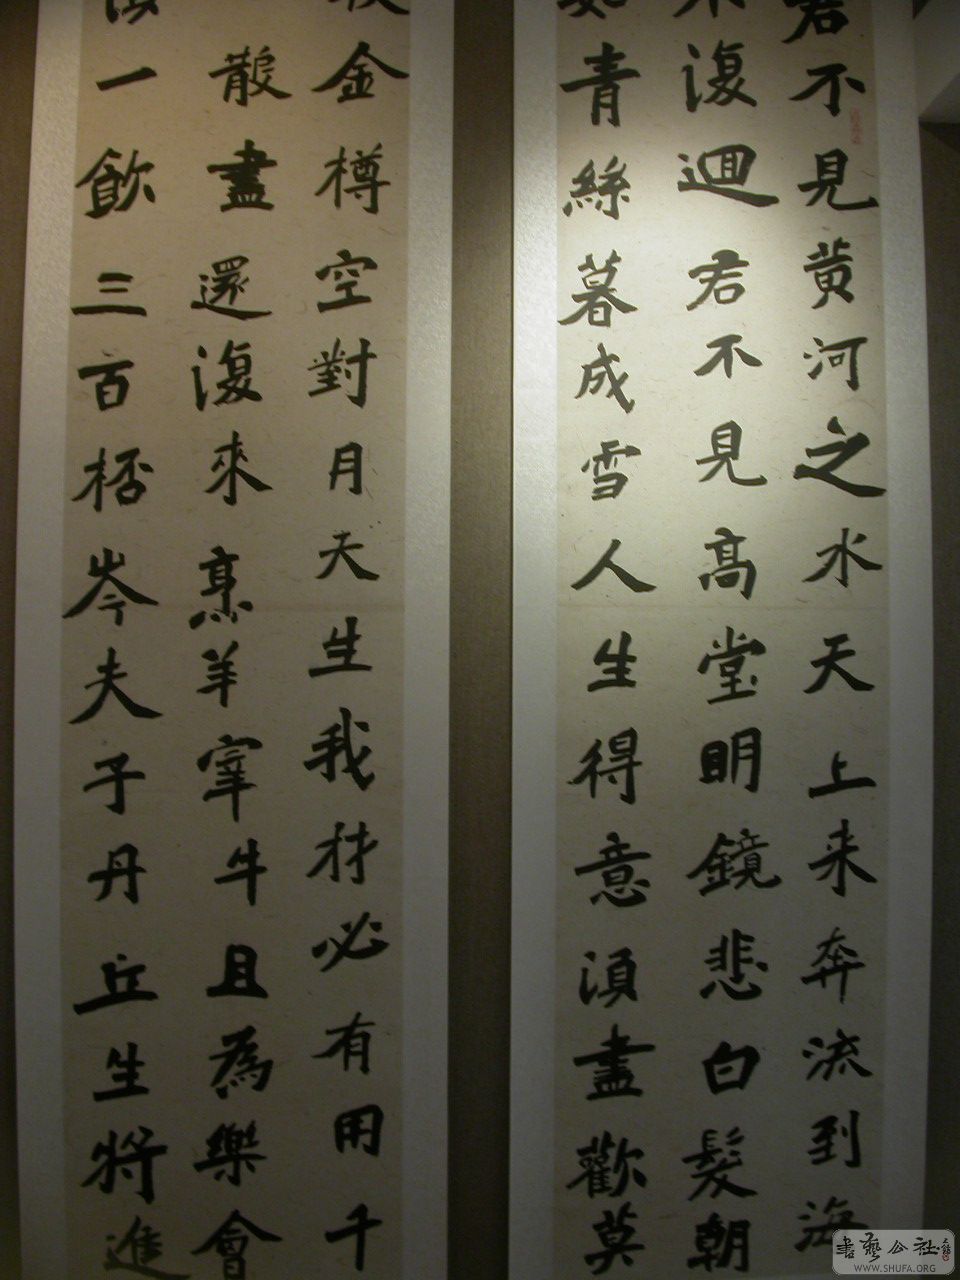 君不見黄河之水天上来奔流到海
不復迴君不見高堂明鏡悲白髮朝
如青絲暮成雪人生得意須盡歡莫
金樽空對月天生我材必有用千
散盡還復來烹羊宰牛且為樂會
須一飲三百桮岑夫子丹丘生將進
書藝公社
WWW.SHUFA.ORG